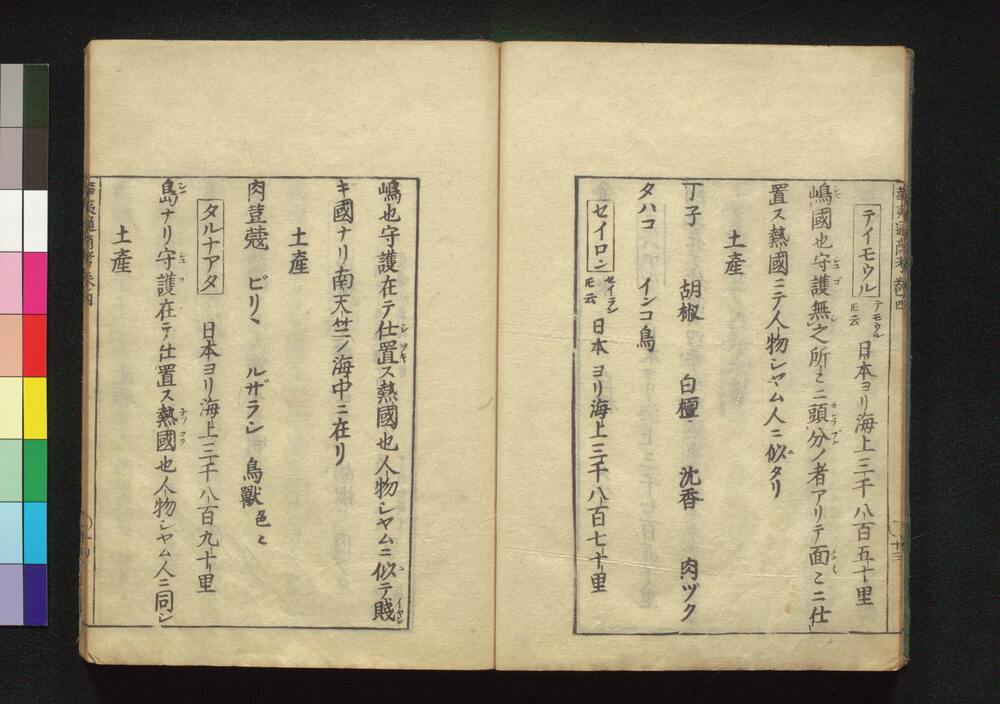 テイモウル テモウル
氏云 日本ヨリ海上三千八百五十里
嶋國也守護無之所ミニ頭分ノ者アリテ面ミニ仕
置ス熱國ニテ人物シヤム人ニ似タリ
土産
丁子 胡椒 白檀 沈香 肉ヅク
タハコ インコ鳥
セイロン セイラン
氏云 日本ヨリ海上三千八百七十里
嶋也守護在テ仕置ス熱國也人物シヤムニ似テ賤
キ國ナリ南天竺ノ海中ニ在リ
土産
肉荳蔲 ビリヽ ルザラシ 鳥獸色ミ
タルナアタ 日本ヨリ海上三千八百九十里
島ナリ守護在テ仕置ス熱國也人物シヤム人ニ同シ
土産
華夷通商考卷四